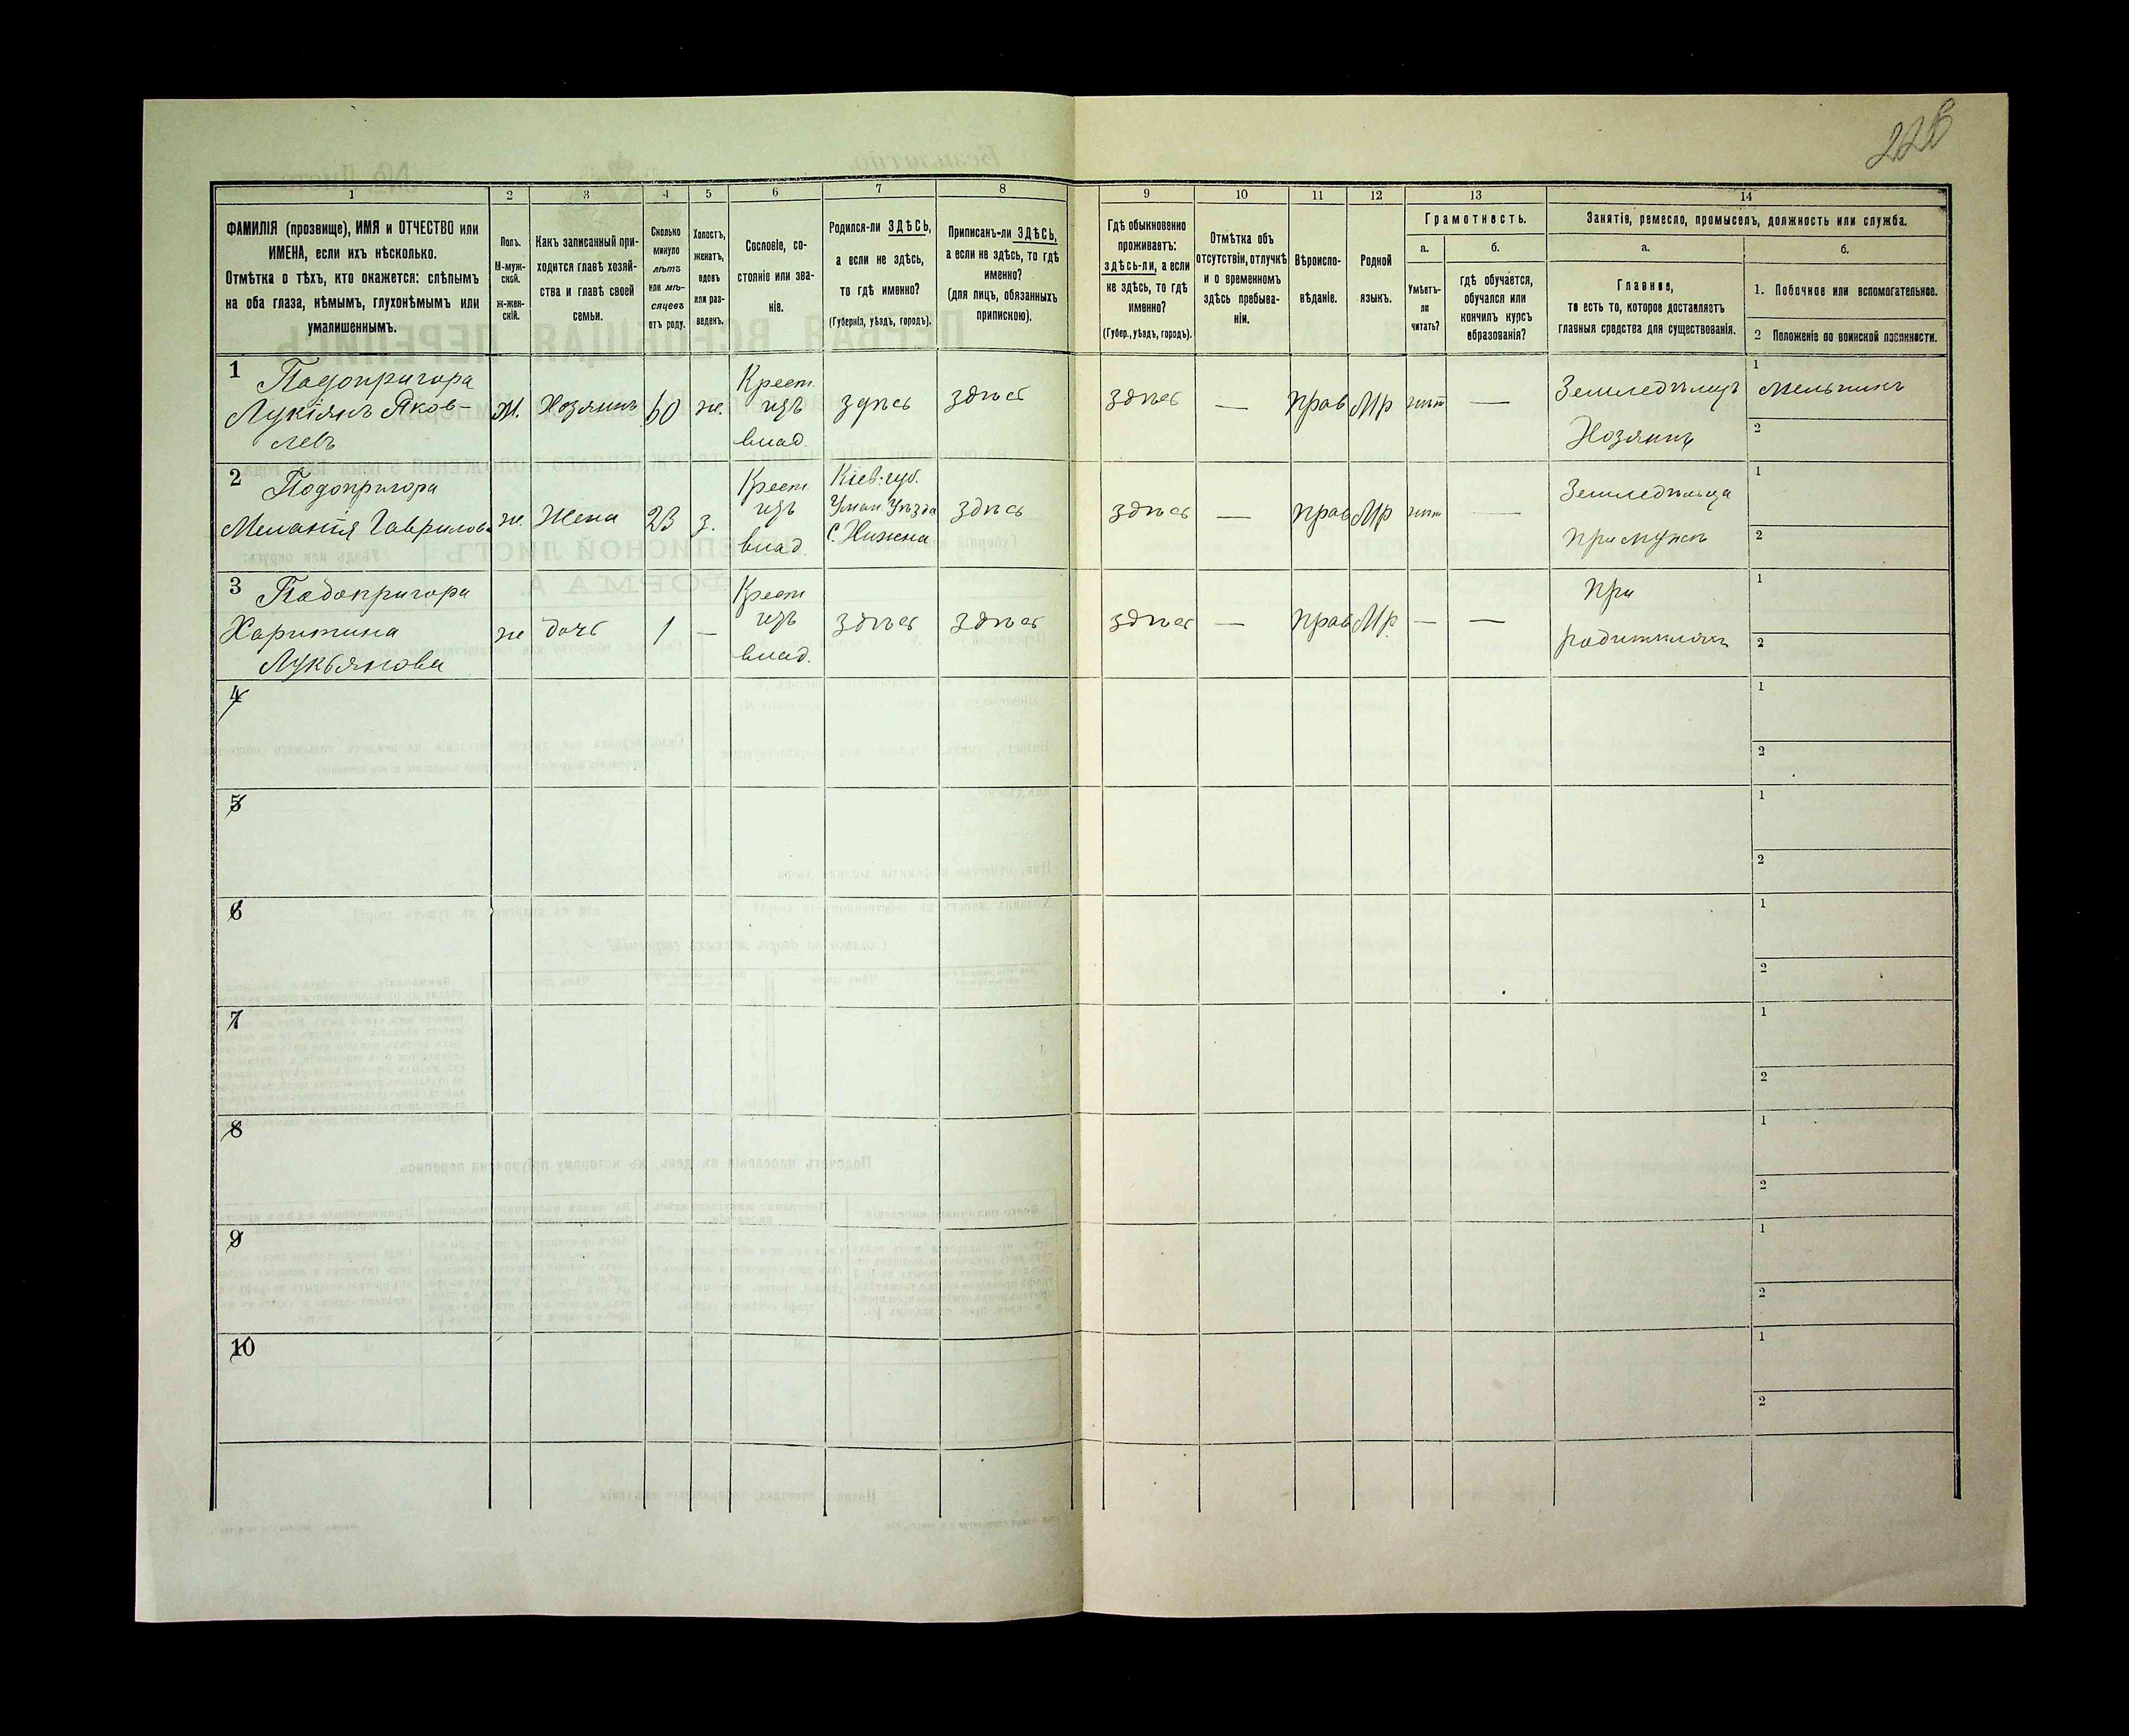 228
1 2 3 4 5 6 7 8 9 10 11 12 13 14
ФАМИЛІЯ (прозвище), ИМЯ и ОТЧЕСТВО или
ИМЕНА, если ихъ нѣсколько.
Отмѣтка о тѣхъ, кто окажется: слѣпымъ
на оба глаза, нѣмымъ, глухонѣмымъ или
умалишеннымъ.
Полъ.
М-муж-
ской.
Ж-жен-
скій.
Какъ записанный при-
ходится главѣ хозяй-
ства и главѣ своей
семьи.
Сколько
минуло
лѣтъ
или мѣ-
сяцевъ
отъ роду.
Холостъ,
женатъ,
вдовъ
или раз-
веденъ.
Сословіе, со-
стояніе или зва-
ніе.
Родился-ли ЗДѢСЬ,
а если не здѣсь,
то гдѣ именно?
(Губернія, уѣздъ, городъ).
Приписанъ-ли ЗДѢСЬ,
а если не здѣсь, то гдѣ
именно?
(для лицъ, обязанныхъ
припискою).
Гдѣ обыкновенно
проживаетъ:
здѣсь-ли, а если
не здѣсь, то гдѣ
именно?
(Губер., уѣздъ, городъ).
Отмѣтка объ
отсутствіи, отлучкѣ
и о временномъ
здѣсь пребыва-
ніи.
Вѣроиспо-
вѣданіе.
Родной
языкъ.
Грамотность.
а.
Умѣетъ-
ли
читать?
б.
гдѣ обучается,
обучался или
кончилъ курсъ
образованія?
Занятіе, ремесло, промыселъ, должность или служба.
а.
Главное,
то есть то, которое доставляетъ
главныя средства для существованія.
б.
1. Побочное или вспомогательное.
2 Положеніе по воинской повинности.
1 Подопригора
Лукіянъ Яков-
левъ
М.
Хозяинъ
60
ж.
Крест.
изъ
влад.
здѣсь
здѣсь
здѣсь
—
прав
Мр
нѣт
—
Земледѣлецъ
Хозяинъ
1 Мельникъ
2
2 Подопригора
Меланія Гаврилова
ж.
Жена
23
з.
Крест.
изъ
влад.
Кіев. губ.
Уман. Уѣзда
С.
здѣсь
здѣсь
—
прав
Мр
нѣт
—
Земледѣльца
при мужѣ
1
2
3 Подопригора
Харитина
Лукьянова
ж
дочь
1
—
Крест
изъ
влад.
здѣсь
здѣсь
здѣсь
—
прав
Мр.
—
—
При
родителяхъ
1
2
4
1
2
5
1
2
6
1
2
7
1
2
8
1
2
9
1
2
10
1
2